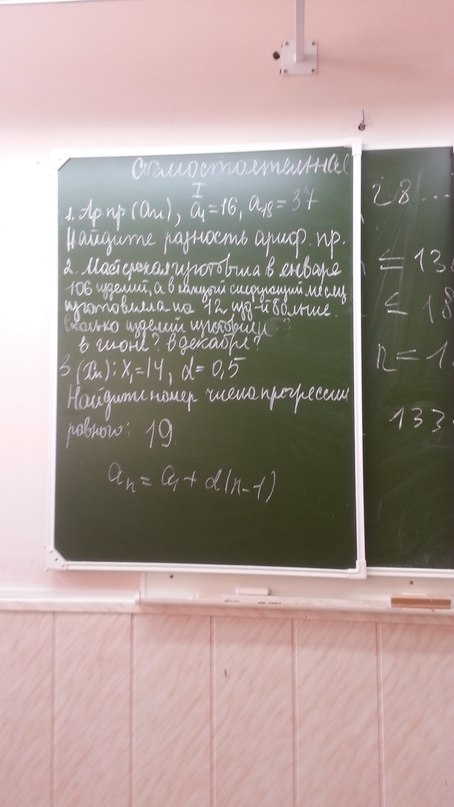 Самостоятельная
I
1. Ар пр (an), a₁=16, a₁₈=37
Найдите разность ариф. пр.
2. Мастерская изготовила в январе
106 изделий, а в каждый следующий месяц
изготовляла на 12 изд-й больше.
Сколько изделий изготовили
в июне? в декабре?
3 (Xn): X₁=14, d=0,5
Найдите номер члена прогрессии
равного: 19
an = a₁ + d(n-1)
28...
≤ 13
≤ 18
n=1
133